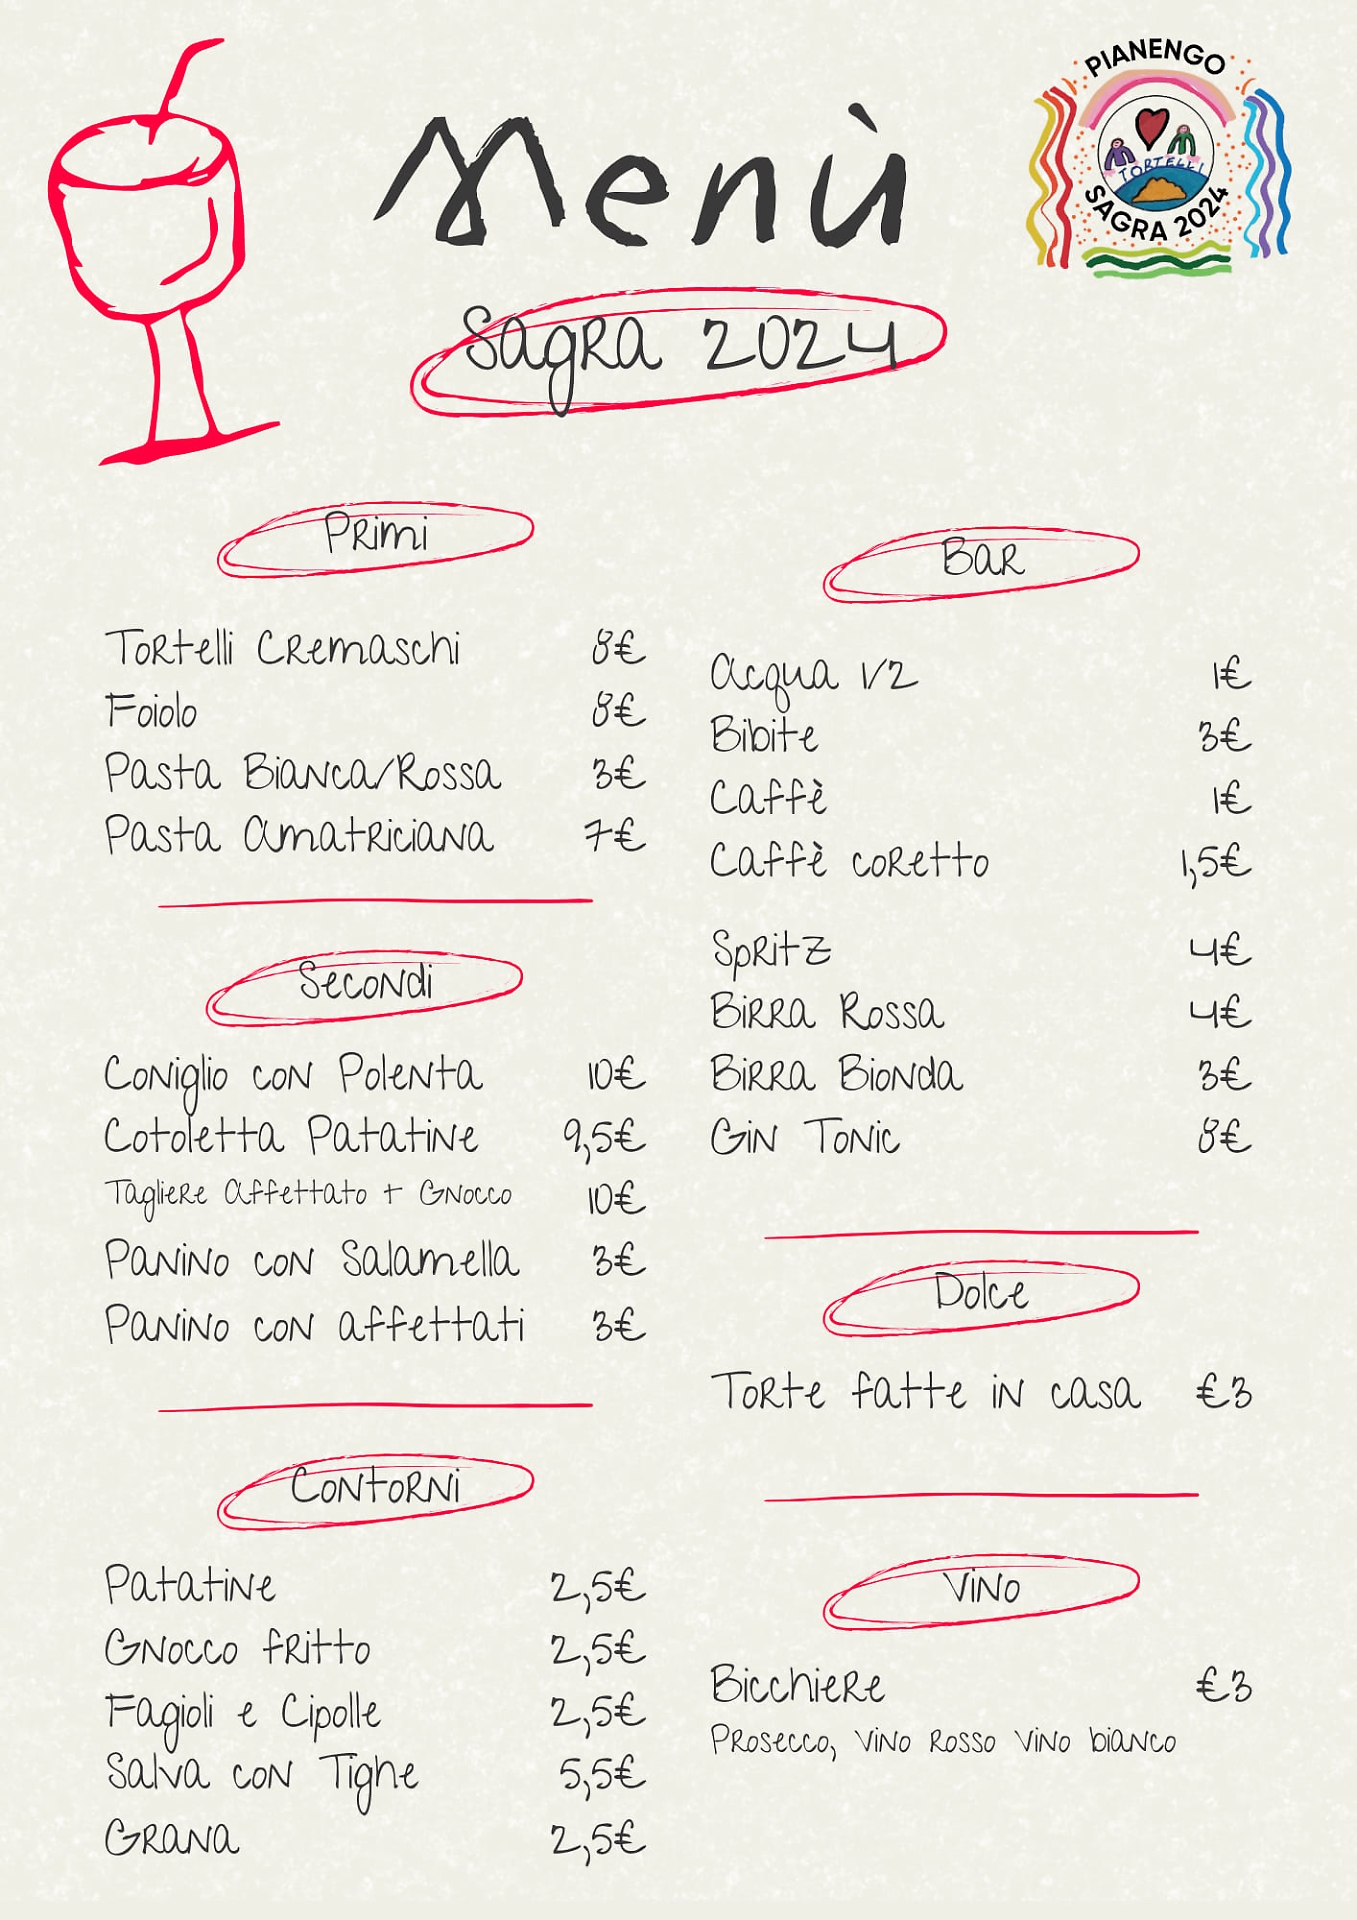 Menù
PIANENGO
TORTELLI
SAGRA 2024
Sagra 2024
Primi
Tortelli Cremaschi 8€
Foiolo 8€
Pasta Bianca/Rossa 3€
Pasta Amatriciana 7€
Secondi
Coniglio con Polenta 10€
Cotoletta Patatine 9,5€
Tagliere Affettato + Gnocco 10€
Panino con Salamella 3€
Panino con affettati 3€
Contorni
Patatine 2,5€
Gnocco fritto 2,5€
Fagioli e Cipolle 2,5€
Salva con Tighe 5,5€
Grana 2,5€
Bar
Acqua 1/2 1€
Bibite 3€
Caffè 1€
Caffè coretto 1,5€
Spritz 4€
Birra Rossa 4€
Birra Bionda 3€
Gin Tonic 8€
Dolce
Torte fatte in casa €3
Vino
Bicchiere €3
Prosecco, Vino Rosso Vino bianco